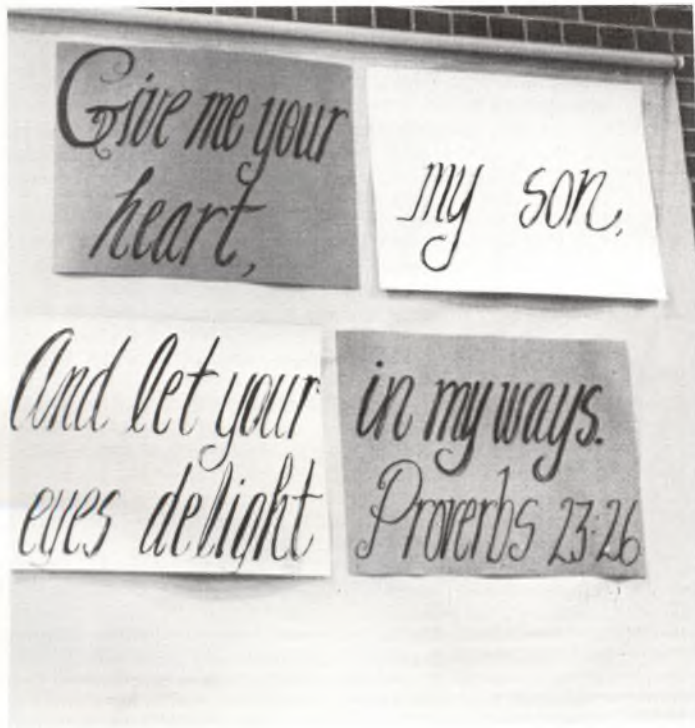 Give me your
heart,
my son,
And let your
eyes delight
in my ways.
Proverbs 23:26